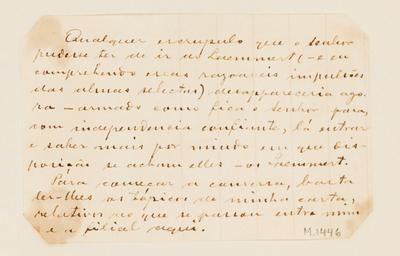 Qualquer escrupulo que o senhor
pudesse ter de ir ao Laemmert (—e eu
comprehendo essas razoaveis impulsões
das almas selectas) desappareceria ago-
ra — armado como fica o senhor para,
com independencia confiante, lá entrar
e saber mais por miudo em que dis-
posição se acham elles — os Laemmert.
Para começar a conversa, basta
ler-lhes os topicos da minha carta,
relativos ao que se passou entre mim
e a filial aqui.
M.1446